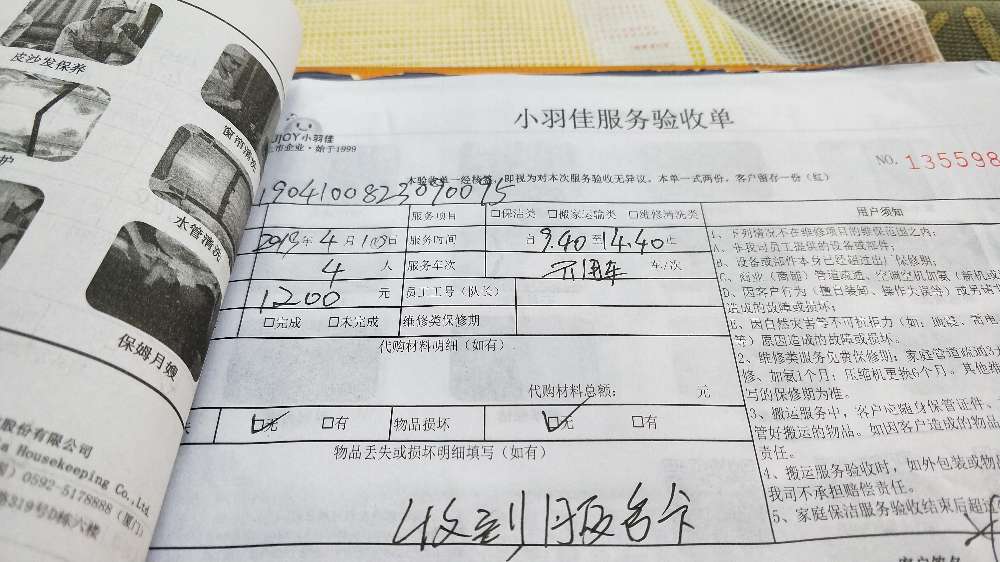 皮沙发保养
窗帘清洗
护
水管清洗
保姆月嫂
股份有限公司
Housekeeping Co.,Ltd
0592-5178888 (厦门)
319号D栋六楼
JOY小羽佳
市企业·始于1999
小羽佳服务验收单
NO. 135598
本验收单一经核签，即视为对本次服务验收无异议。本单一式两份，客户留存一份（红）
服务项目 □保洁类 □搬家运输类 □维修清洗类
2019年4月10日 服务时间 自9.40至14.40止
4人 服务车次 不用车 车/次
1200元 员工工号（队长）
□完成 □未完成 维修类保修期
代购材料明细（如有）
代购材料总额： 元
□无 □有 物品损坏 □无 □有
物品丢失或损坏明细填写（如有）
收到服务卡
用户须知
1、下列情况不在维修项目的维保范围之内：
A、非我司员工提供的设备或部件；
B、设备或部件本身已经超过出厂保修期；
D、因客户行为（擅自装卸、操作大意等）或另请
造成的故障或损坏；
E、因自然灾害等不可抗拒力（如：地震、高电
等）原因造成的故障或损坏。
2、维修类服务免费保修期：家庭管道疏通3
修、加氨1个月；压缩机更换6个月。其他维
写的保修期为准。
3、搬运服务中，客户应随身保管证件、
管好搬运的物品。如因客户造成的物品
责任。
4、搬运服务验收时，如外包装或物
我司不承担赔偿责任。
5、家庭保洁服务验收结束后超过